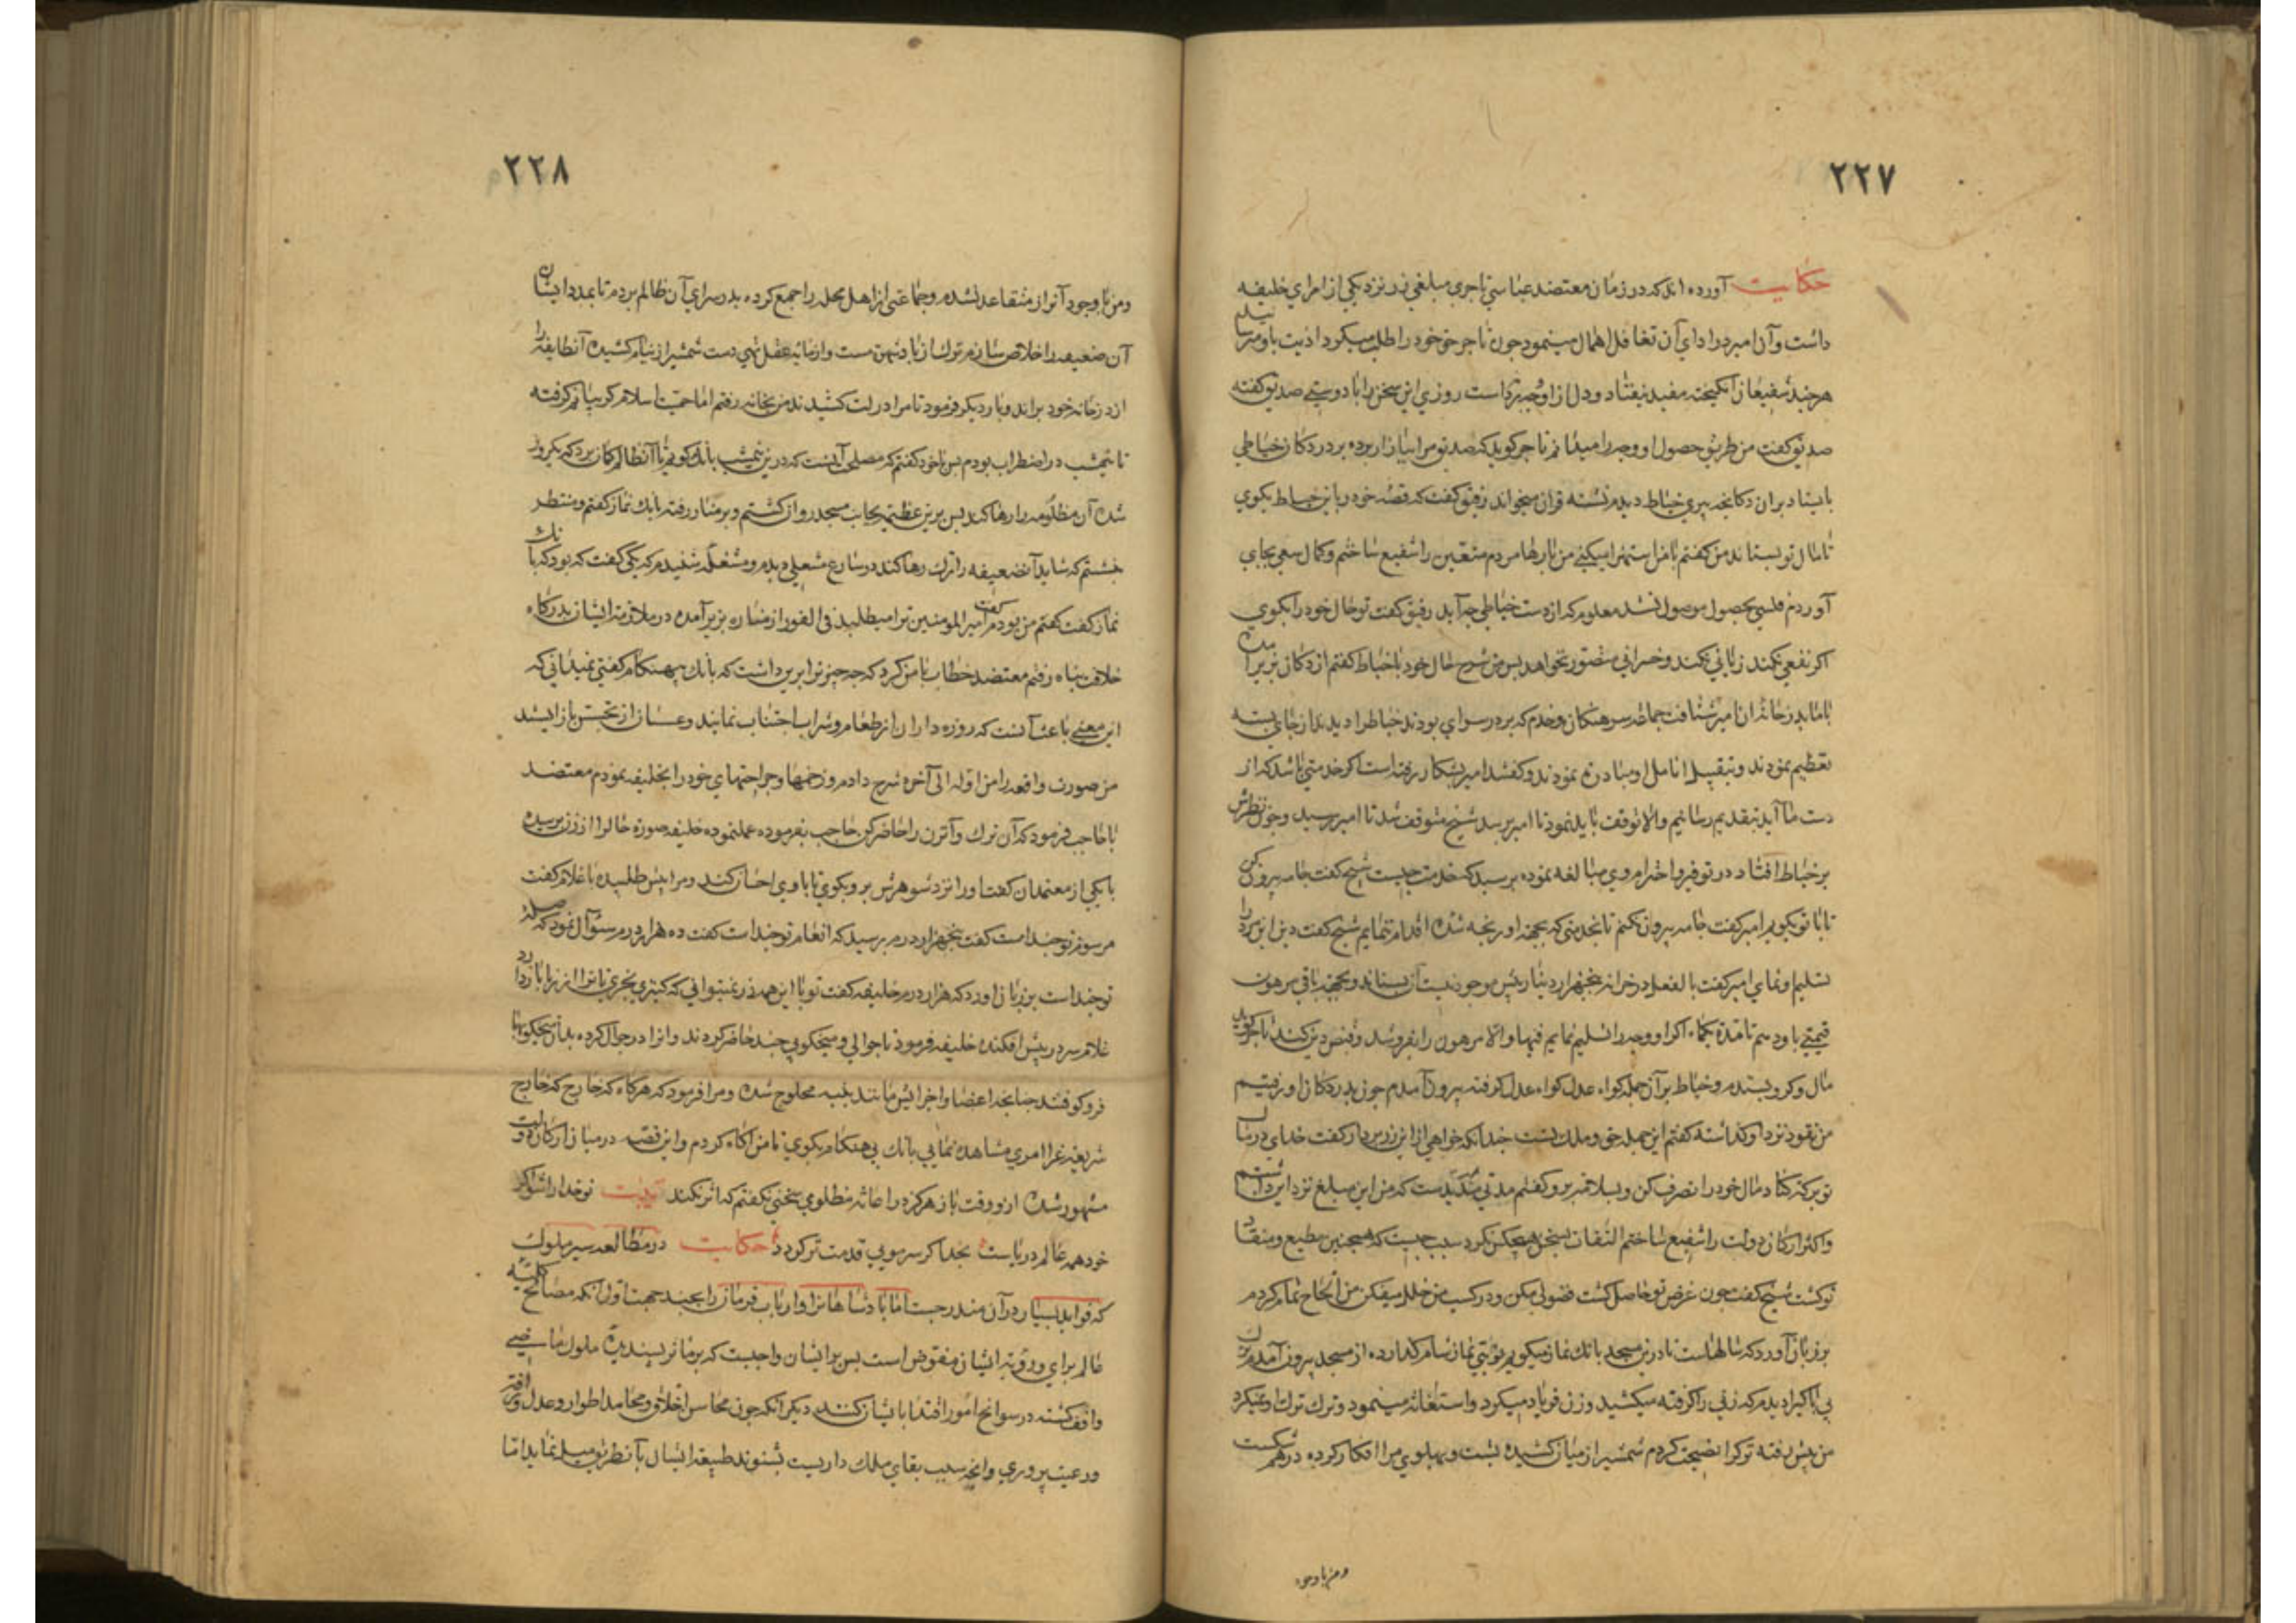 ۲۲۷
حکایت آورده اند که در زمان معتضد عباسی تاجری مبلغی زر نزد یکی از امرای خلیفه
داشت و آن امیر در ادای آن تغافل اهمال مینمود چون تاجر حق خود را طلب میکرد اذیت باو میرسانید
هر چند شفیعان انکیخت مفید نیفتاد و دل از او وجه برداشت روزی این سخن را با دوستی صدیق کفته
صدیق کفت من طریق حصول او وجه را میدانم تاجر کوید که صدیق مرا ببازار برده بر در دکان خیاطی
بایستاد بران دکانچه پیری خیاط دیدم نشسته قران میخواند رفیق کفت که قصه خود باین خیاط بکوی
تا مال تو بستاند من کفتم با من استهزا میکنی من بارها مردم متعین را شفیع ساختم و کمال سعی بجای
آوردم فلسی بحصول موصول نشد معلوم که از دست خیاطی چه آید رفیق کفت تو حال خود را بکوی
اکر نفعی نکند زیانی نکند و خسرانی متصور نخواهد بس من شرح حال خود با خیاط کفتم از دکان بزیر آمده
با ما بدر خانه ان امیر شتافت جماعه سرهنکان و خدم که بر در سرای بودند خیاط را دیدند از جای بسته
تعظیم نمودند و بتقبیل انامل او مبادرت نمودند و کفتند امیر بشکار رفته است اکر خدمتی باشد که از
دست ما آید بتقدیم رسانیم والا توقف باید نمود تا امیر برسد شیخ متوقف شد تا امیر برسید و چون نظرش
بر خیاط افتاد در توقیر و احترام وی مبالغه نموده پرسید که خدمت چیست شیخ کفت جامه بیرون کن
تا با تو بکویم امیر کفت جامه بیرون نکنم تا بخدمتی که بجهة او رنجه شده اقدام ننمایم شیخ کفت دین این مرد را
تسلیم او نمای امیر کفت بالفعل در خزانه پنجهزار دینار بیش موجود نیست آن بستاند و بجهة باقی مرهون
قیمتی باو دهم تا مدة یکماه اکر او وجه را تسلیم نمایم فبها والا مرهون را بفروشد و قبض دین کند تاجر کوید
مال و کرو بستدم و خیاط بر آن جمله کواه عدل کواه عدل کرفته بیرون آمدم چون بدر دکان او رفتیم
من نقود نزد او کذاشته کفتم این جمله حق و ملک تست چندانکه خواهی از این زر بردار کفت خدای در مال
تو برکة کناد مال خود را تصرف کن و بسلامة برو کفتم مدتی مدیدست که من این مبلغ نزد این داشتم
و اکثر ارکان دولت را شفیع ساختم التفات بسخن هیچکس نکرد سبب چیست که همچنین مطیع و منقاد
تو کشت شیخ کفت چون غرض تو حاصل کشت فضولی مکن و در کسب من خلل میفکن من الحاح تمام کردم
بر زبان آورد که سالهاست تا در این مسجد بانک نماز میکویم نوبتی نماز شام کذارده از مسجد بیرون آمدم ترک
بی باکی را دیدم که زنی را کرفته میکشید و زن فریاد میکرد و استغاثه مینمود و ترک ترک او نمیکرد
من پیش رفته ترک را نصیحت کردم شمشیر از میان کشیده پشت و پهلوی مرا افکار کرده درهم شکست
و من با وجود
۲۲۸
و من با وجود آن از من متقاعد نشده و جماعتی از اهل محله را جمع کرده بدر سرای آن ظالم بردم تا بمدد ایشان
آن ضعیفه را خلاص سازم ترک از باده مست و از مایه عقل تهی دست شمشیر از نیام کشیده آنطایفه را
از در خانه خود براند و بار دیکر فرمود تا مرا در لت کشیدند من بخانه رفتم اما حمیت اسلام کریبانم کرفته
تا نیمشب در اضطراب بودم بس با خود کفتم که مصلحت آنست که در نیمشب بانک کویم تا آنظالم کمان برد که روز
شده آن مظلومه را رها کند بس برین عظیمة بجانب مسجد روان کشتم و بر منار رفته بانک نماز کفتم و منتظر
نشستم که شاید آنضعیفه را ترک رها کند در شارع مشعلی دیدم و مشغله شنیدم که یکی کفت که بود که بانک
نماز کفت کفتم من بودم کفت امیر المومنین ترا میطلبد فی الفور از مناره بزیر آمده در ملازمة ایشان بدرکاه
خلافت پناه رفتم معتضد خطاب با من کرد که چه چیز ترا برین داشت که بانک بیهنکام کفتی نمیدانی که
این معنی باعث آنست که روزه داران از طعام و شراب اجتناب نمایند و عسسان از تجسس باز ایستند
من صورت واقعه را من اوله الی آخره شرح دادم و زخمها و جراحتهای خود را بخلیفه نمودم معتضد
با حاجب فرمود که آن ترک و آنزن را حاضر کن حاجب بفرموده عمل نموده خلیفه صورة حال را از زن پرسیده
با یکی از معتمدان کفت او را نزد شوهرش بر و بکوی تا با وی احسان کند و مرا پیش طلبیده با غلام کفت
مرسوم تو چند است کفت پنجهزار درم پرسید که انعام تو چند است کفت ده هزار درم سئوال نمود که صلهٔ
تو چند است بر زبان اورد که هزار درم خلیفه کفت تو با این همه زر نمیتوانی که کنیزی بخری تا ترا از زنا باز دارد
غلام سر در پیش افکنده خلیفه فرمود تا جوالی و میخکوبی چند حاضر کردند و انرا در جوال کرده بدان میخکوبها
فرو کوفتند چنانچه اعضا و اجزایش مانند پنبه محلوج شده و مرا فرمود که هرکاه که خارج
شریعة غرا امری مشاهده نمایی بانک بی هنکام بکوی تا من اکاه کردم و این قصه در میان ارکان دولت
مشهور شده از ان وقت باز هرکز در اعانة مظلومی سخنی نکفتم که اثر نکند بیت تو خدا را شو اکر
خود همه عالم دریاست بخدا اکر سر مویی قدمت تر کردد حکایت در مطالعه سیر ملوک
که فواید بسیار در آن مندرجست اما پادشاهان را و ارباب فرمان را بچند جهت اول انکه مصالح کلیه
عالم برای و رویة ایشان مفوض است بس بر ایشان واجبست که بر ماثر پسندیدهٔ ملوک ماضی
واقف کشته در سوانح امور اقتدا بایشان کنند دیکر آنکه چون محاسن اخلاق و محامد اطوار و عدل
و رعیت پروری و انچه سبب بقای ملک داریست بشنوند طبیعة ایشان بآنطریق میل نماید اما